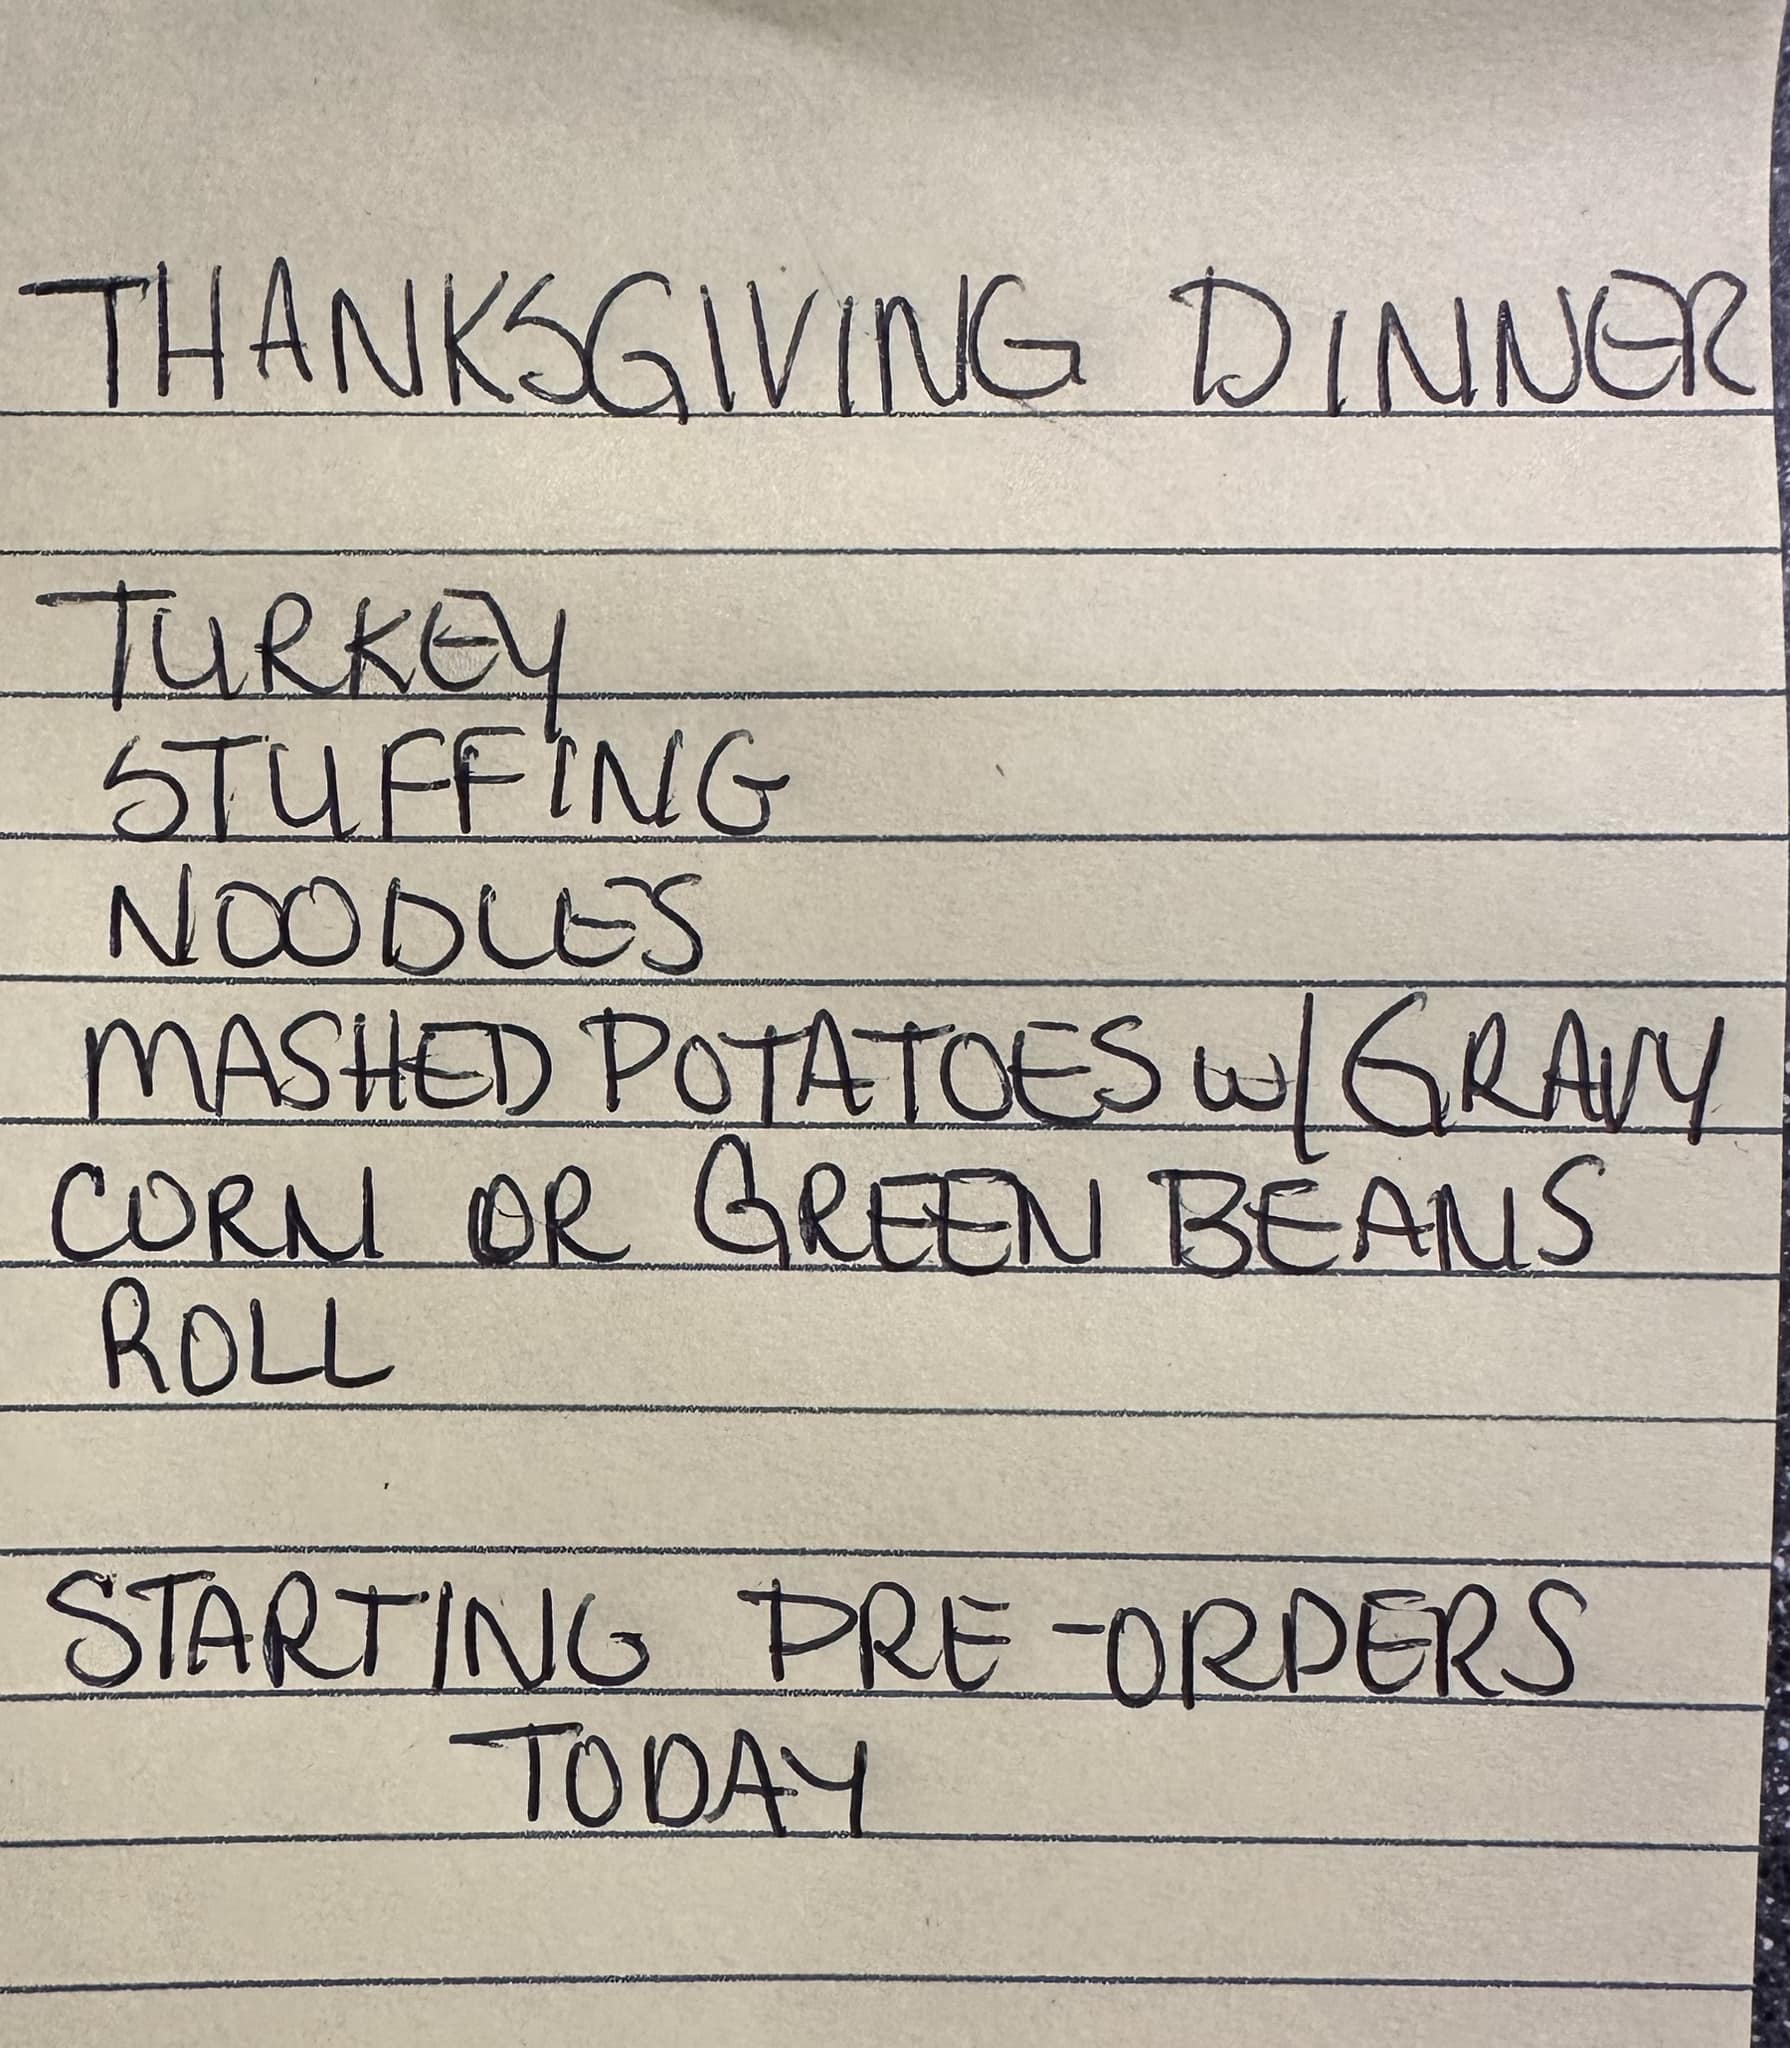 THANKSGIVING DINNER
TURKEY
STUFFING
NOODLES
MASHED POTATOES W/GRAVY
CORN OR GREEN BEANS
ROLL
STARTING PRE-ORDERS
TODAY